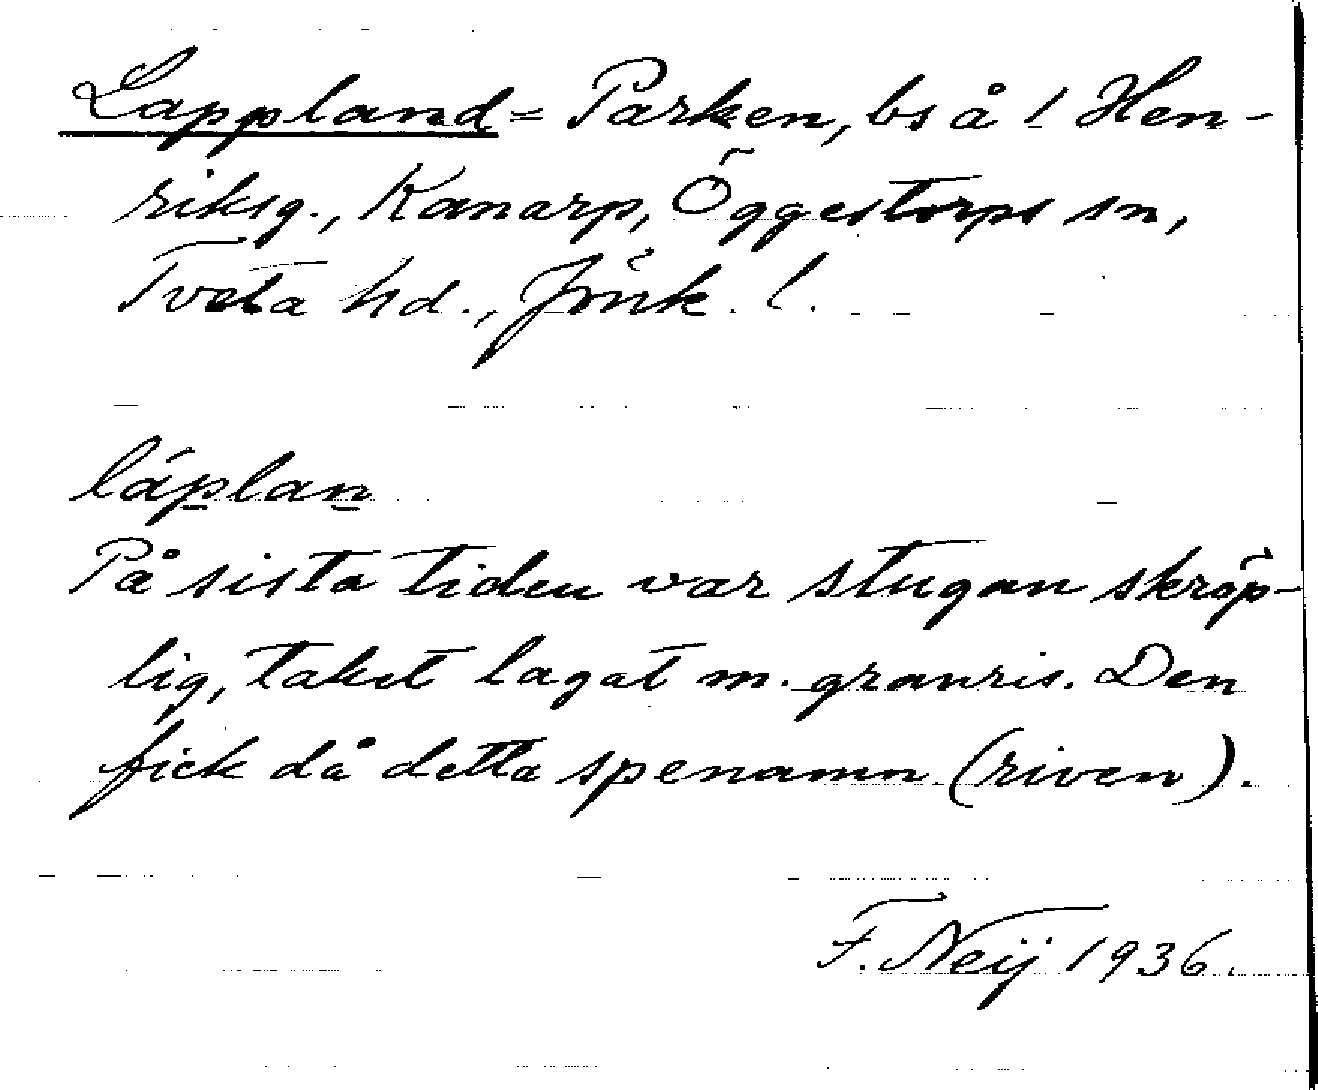 Lappland = Parken, bs å 1 Hen-
riksg., Kanarp, Öggestorps sn,
Tveta hd., Jönk. l.
láplan
På sista tiden var stugan skröp-
lig, taket lagat m. granris. Den
fick då detta spenamn (riven).
F. Neij 1936.